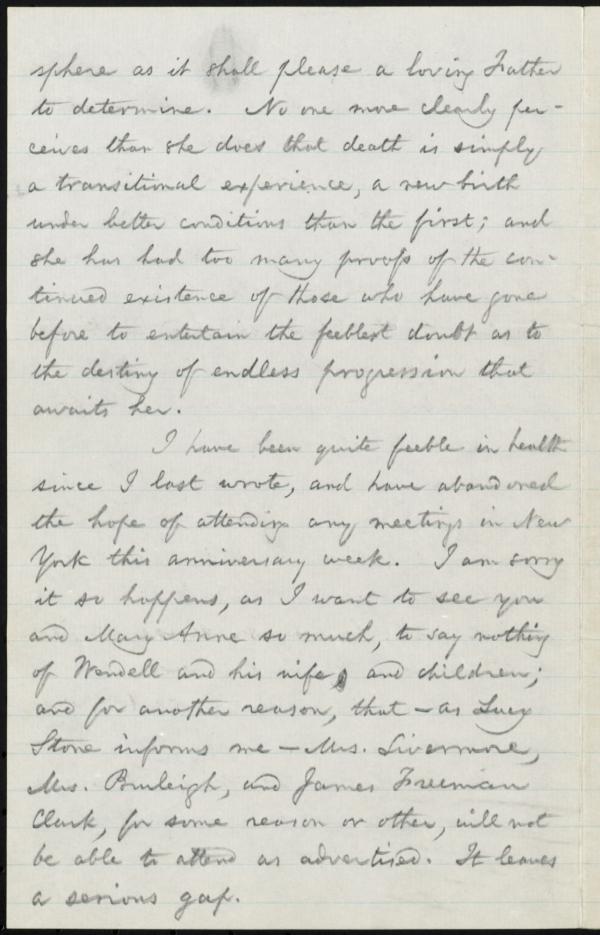 sphere as it shall please a loving Father
to determine. No one more clearly per-
ceives than she does that death is simply
a transitional experience, a new birth
under better conditions than the first; and
she has had too many proofs of the con-
tinued existence of those who have gone
before to entertain the feeblest doubt as to
the destiny of endless progression that
awaits her.
I have been quite feeble in health
since I last wrote, and have abandoned
the hope of attending any meetings in New
York this anniversary week. I am sorry
it so happens, as I want to see you
and Mary Anne so much, to say nothing
of Wendell and his wife, and children;
and for another reason, that — as Lucy
Stone informs me — Mrs. Livermore,
Mrs. Burleigh, and James Freeman
Clark, for some reason or other, will not
be able to attend as advertised. It leaves
a serious gap.